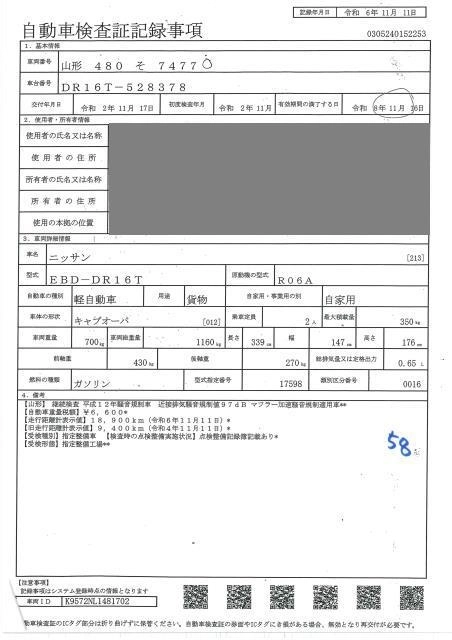 記録年月日 令和 6年 11月 11日
自動車検査証記録事項
0305240152253
1. 基本情報
車両番号 山形 480 そ 7477
車台番号 DR16T-528378
交付年月日 令和 2年 11月 17日 初度検査年月 令和 2年 11月 有効期間の満了する日 令和 8年 11月 16日
2. 使用者・所有者情報
使用者の氏名又は名称
使用者の住所
所有者の氏名又は名称
所有者の住所
使用の本拠の位置
3. 車両詳細情報
車名 ニッサン [213]
型式 EBD-DR16T 原動機の型式 R06A
自動車の種別 軽自動車 用途 貨物 自家用・事業用の別 自家用
車体の形状 キャブオーバ [012] 乗車定員 2人 最大積載量 350kg
車両重量 700kg 車両総重量 1160kg 長さ 339cm 幅 147cm 高さ 176cm
前軸重 430kg 後軸重 270kg 総排気量又は定格出力 0.65 L
燃料の種類 ガソリン 型式指定番号 17598 類別区分番号 0016
4. 備考
【山形】 継続検査 平成12年騒音規制車 近接排気騒音規制値97dB マフラー加速騒音規制適用車**
【自動車重量税額】¥6,600*
【走行距離計表示値】18,900km(令和6年11月11日)*
【旧走行距離計表示値】9,400km(令和4年11月11日)*
【受検種別】指定整備車 【検査時の点検整備実施状況】点検整備記録簿記載あり*
【受検形態】指定整備工場**
58
【注意事項】
記録事項はシステム登録時点の情報となります
車両ID K9572NL1481702
動車検査証のICタグ部分は折り曲げずに保管ください。自動車検査証の券面やICタグにき損がある場合、無効となり再交付が必要です。